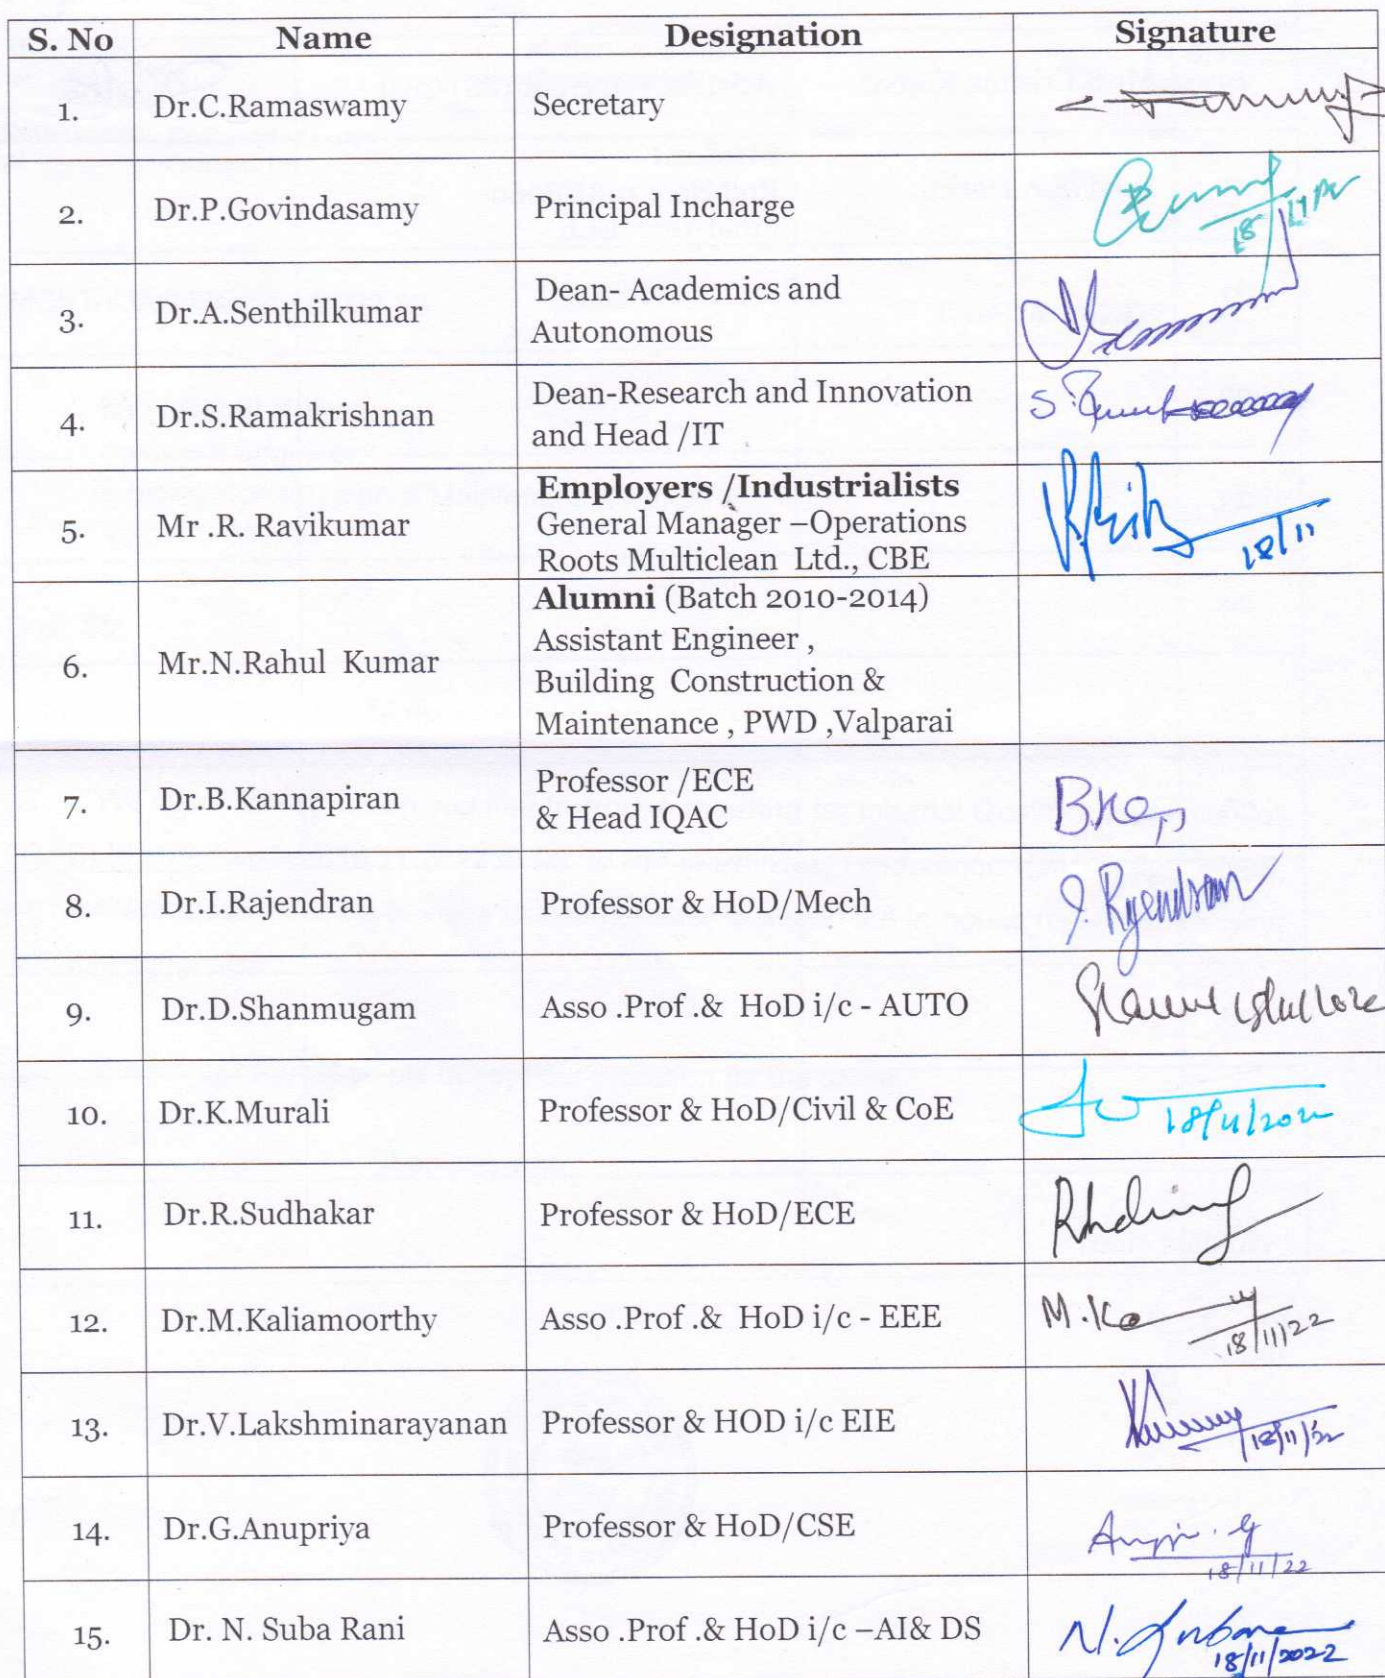 S. No Name Designation Signature
1. Dr.C.Ramaswamy Secretary
2. Dr.P.Govindasamy Principal Incharge
18
3. Dr.A.Senthilkumar Dean- Academics and
Autonomous
4. Dr.S.Ramakrishnan Dean-Research and Innovation
and Head /IT
Employers /Industrialists
5. Mr .R. Ravikumar General Manager –Operations
Roots Multiclean Ltd., CBE
18/11
Alumni (Batch 2010-2014)
Assistant Engineer ,
6. Mr.N.Rahul Kumar Building Construction &
Maintenance , PWD ,Valparai
7. Dr.B.Kannapiran Professor /ECE
& Head IQAC
8. Dr.I.Rajendran Professor & HoD/Mech I. Rajendran
9. Dr.D.Shanmugam Asso .Prof .& HoD i/c - AUTO
10. Dr.K.Murali Professor & HoD/Civil & CoE 18/11/2022
11. Dr.R.Sudhakar Professor & HoD/ECE
12. Dr.M.Kaliamoorthy Asso .Prof .& HoD i/c - EEE M.Ka
18/11/22
13. Dr.V.Lakshminarayanan Professor & HOD i/c EIE
18/11/22
14. Dr.G.Anupriya Professor & HoD/CSE
18/11/22
15. Dr. N. Suba Rani Asso .Prof .& HoD i/c –AI& DS
18/11/2022